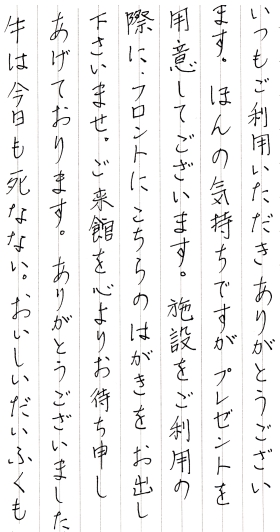 いつもご利用いただきありがとうござい
ます。ほんの気持ちですがプレゼントを
用意してございます。施設をご利用の
際に、フロントにこちらのはがきをお出し
下さいませ。ご来館を心よりお待ち申し
あげております。ありがとうございました
牛は今日も死なない。おいしいだいふくも